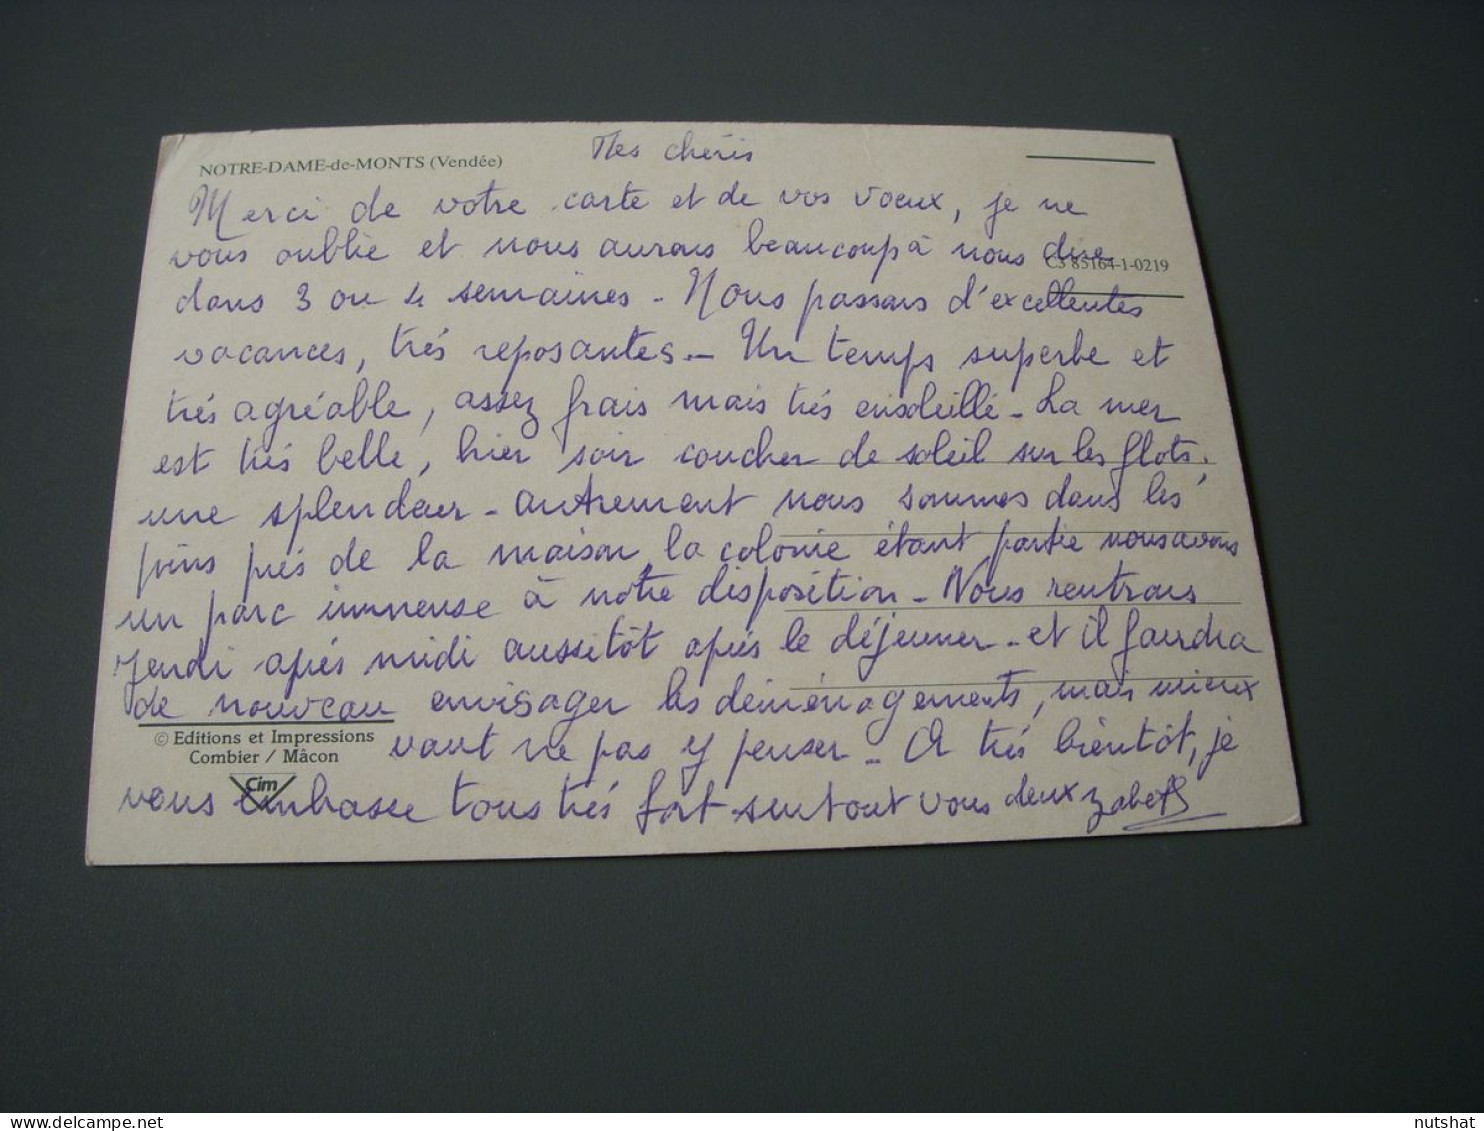 NOTRE-DAME-de-MONTS (Vendée)
Mes chéris
Merci de votre carte et de vos voeux, je ne
vous oublie et nous aurons beaucoup à nous dire
C3 85164-1-0219
dans 3 ou 4 semaines - Nous passons d'excellentes
vacances, très reposantes - Un temps superbe et
très agréable, assez frais mais très ensoleillé - La mer
est très belle, hier soir coucher de soleil sur les flots,
une splendeur - autrement nous sommes dans les
pins près de la maison, la colonie étant partie nous avons
un parc immense à notre disposition - Nous rentrons
jeudi après midi aussitôt après le déjeuner - et il faudra
de nouveau envisager les déménagements, mais mieux
© Editions et Impressions
Combier / Mâcon
vaut ne pas y penser - A très bientôt, je
Cim
vous embrasse tous très fort surtout vous deux Zabeth
nutshat